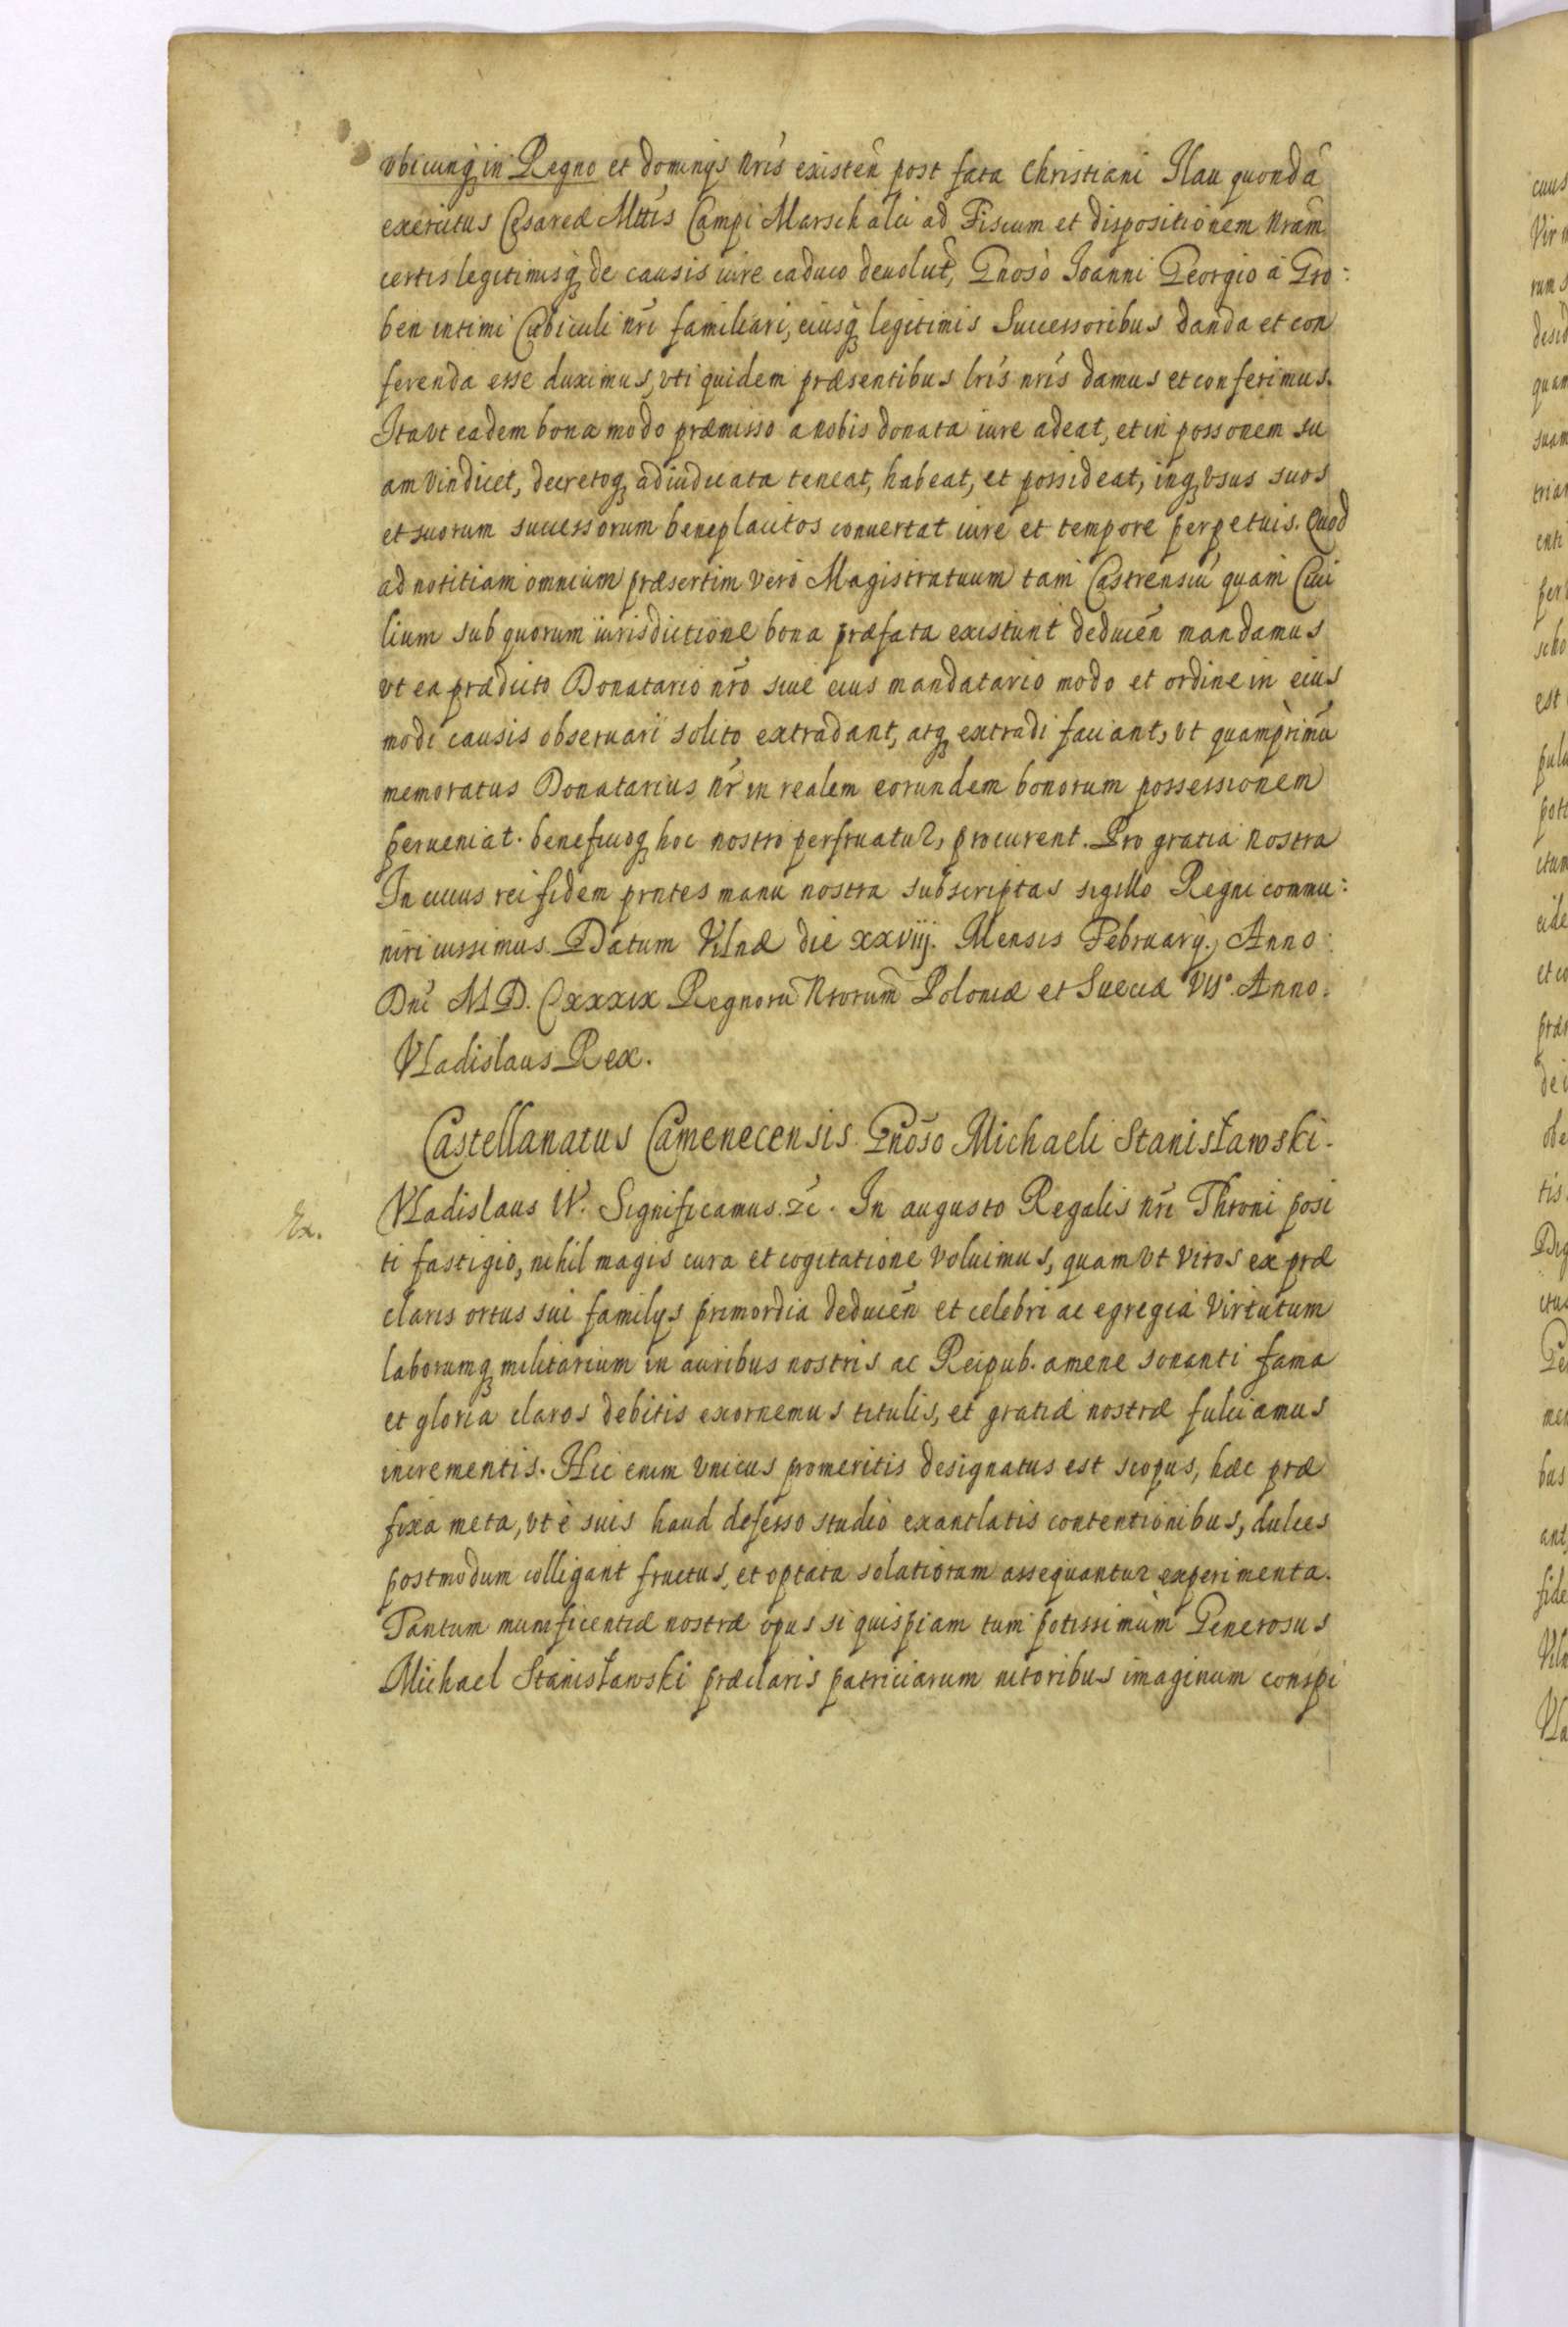 vbicunq in Regno et dominijs nris existen post fata Christiani Ilau quonda
exercitus Cesareæ Mttis Campi Marschalci ad Fiscum et dispositionem nram
certis legitimisq de causis iure caduco deuolut, Gnoso Joanni Georgio à Gro:
ben intimi Cubiculi nri familiari, eiusq legitimis Successoribus danda et con
ferenda esse duximus, vti quidem præsentibus lris nris damus et conferimus.
Ita vt eadem bona modo præmisso a nobis donata iure adeat, et in possonem su
am vindicet, decretoq adiudicata teneat, habeat, et possideat, inq vsus suos
et suorum successorum beneplacitos conuertat iure et tempore perpetuis. Quod
ad notitiam omnium præsertim vero Magistratuum tam Castrensiu quam Ciui
lium sub quorum iurisdictione bona præfata existunt deducen mandamus
vt ea prædicto Donatario nro siue eius mandatario modo et ordine in eius
modi causis obseruari solito extradant, atq extradi faciant, vt quamprimu
memoratus Donatarius nr in realem eorundem bonorum possessionem
perueniat. beneficioq hoc nostro perfruatur, procurent. Pro gratia nostra
In cuius rei fidem prntes manu nostra subscriptas sigillo Regni commu:
niri iussimus. Datum Vilnæ die xxviij. Mensis February. Anno
Dni M D. Cxxxix Regnoru Nrorum Poloniæ et Sueciæ VIJº. Anno.
Vladislaus Rex.
Castellanatus Camenecensis Gnoso Michaeli Stanisławski.
Ex.
Vladislaus IV. Significamus. &c. In augusto Regalis nri Throni posi
ti fastigio, nihil magis cura et cogitatione voluimus, quam vt viros ex præ
claris ortus sui familijs primordia deducen et celebri ac egregia virtutum
laborumq militarium in auribus nostris ac Reipub. amene sonanti fama
et gloria claros debitis exornemus titulis, et gratiæ nostræ fulciamus
incrementis. Hic enim vnicus promeritis designatus est scopus, hæc præ
fixa meta, vt è suis haud defesso studio exantlatis contentionibus, dulces
postmodum colligant fructus, et optata solatiorum assequantur experimenta.
Tantum munificentiæ nostræ opus si quispiam tum potissimùm Generosus
Michael Stanisławski præclaris patriciarum nitoribus imaginum conspi